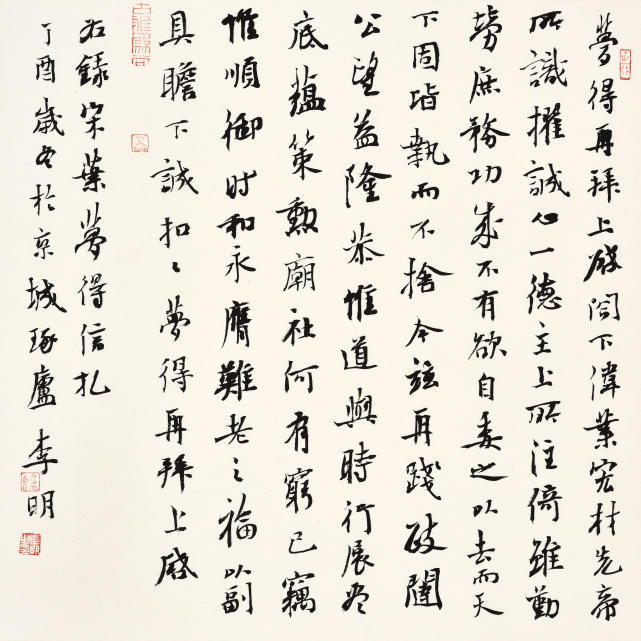 夢得再拜上啟閤下偉業宏材先帝
所識擢誠心一德主上所注倚雖勤
勞庶務功成不有欲自委之以去而天
下固皆執而不捨今茲再踐政闥
公望益隆恭惟道與時行展盡
底蘊策勳廟社何有窮已竊
惟順御時和永膺難老之福以副
具瞻下誠扣扣夢得再拜上啟
右錄宋葉夢得信札
丁酉歲冬於京城琢廬李明